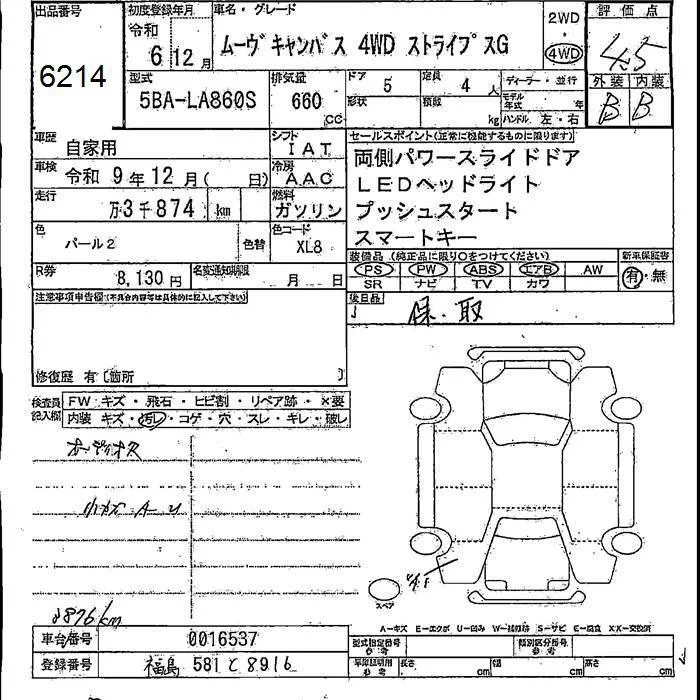 出品番号
6214
初度登録年月
令和
6 12月
車名・グレード
ムーヴキャンバス 4WD ストライプスG
2WD
・
4WD
評価点
4.5
外装 内装
B B
型式
5BA-LA860S
排気量
660
cc
ドア
5
定員
4
人
形状
積数
kg
ディーラー・並行
モデル
年式
年
ハンドル 左・右
車歴
自家用
シフト
IAT
車検
令和 9年12月( 日)
冷房
AAC
走行
万3千874 km
燃料
ガソリン
色
パール2
色替
色コード
XL8
R券
8,130円
名変通知期限
月 日
セールスポイント(正常に機能するものに限ります)
両側パワースライドドア
LEDヘッドライト
プッシュスタート
スマートキー
装備品(純正品に限り○をつけてください)
PS PW ABS エアB AW
SR ナビ TV カワ
新車保証書
有・無
後日品
保・取
注意事項申告欄(不具合内容等は具体的に記入して下さい)
修復歴 有〔箇所 〕
検査員
記入欄
FW キズ・飛石・ヒビ割・リペア跡・×要
内装 キズ・汚レ・コゲ・穴・スレ・キレ・破レ
オーディオレス
小キズ A U
3876km
スペア
A-キズ E-エクボ U-凹み W-補修跡 S-サビ C-腐食 XX-交換済
車台番号
0016537
登録番号
福島 581 と 8916
型式指定番号
参考
類別区分番号
参考
車庫証明用
参考
長さ
cm
幅
cm
高さ
cm